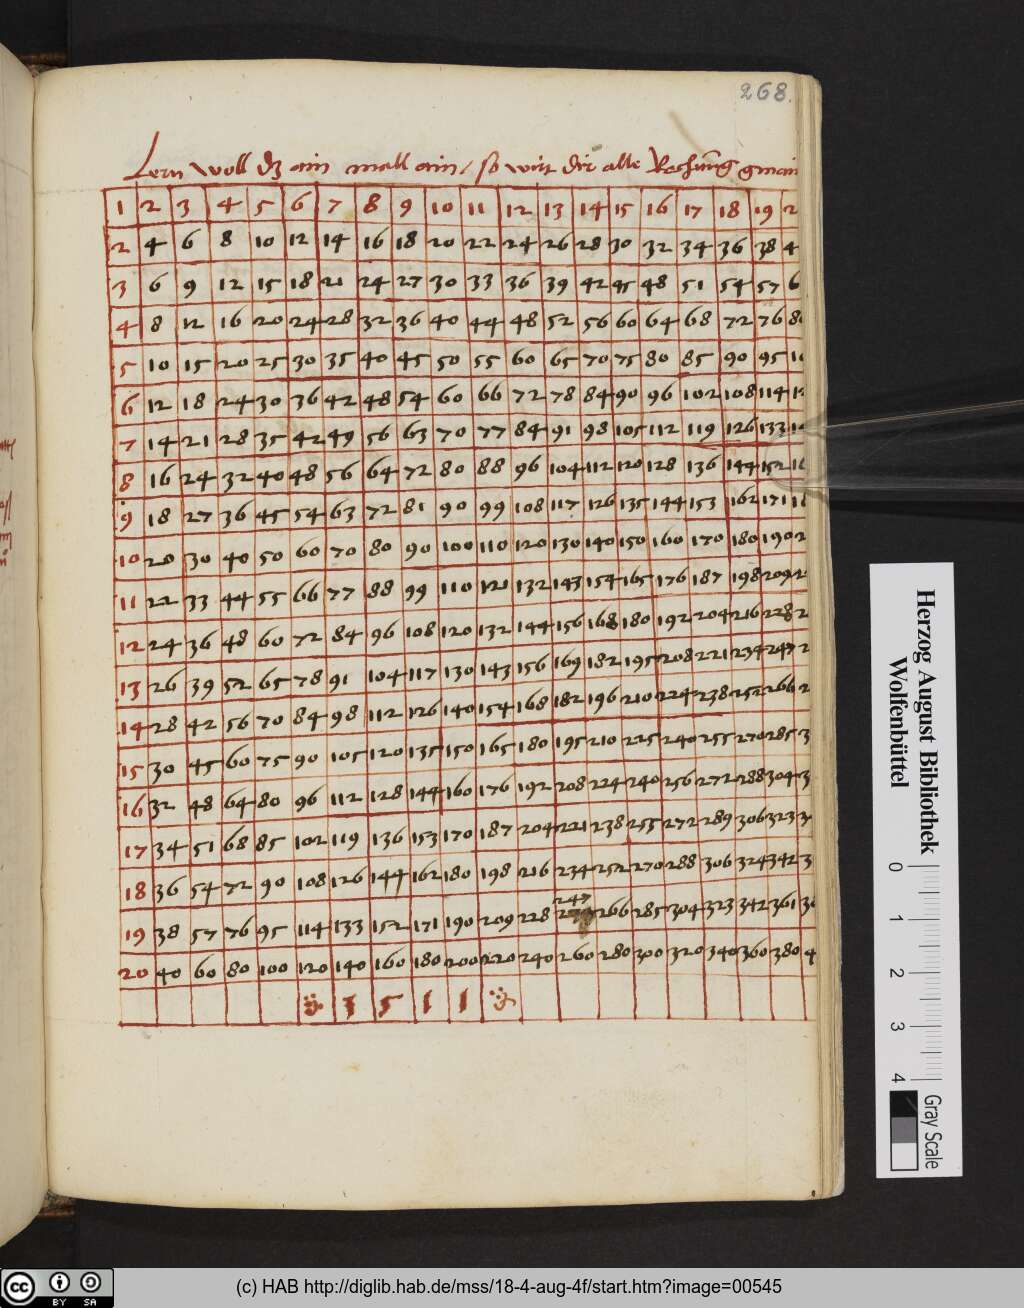 268.
Lern woll dz ain mall ain / so wirt dir alle Rechnug gmain
1 2 3 4 5 6 7 8 9 10 11 12 13 14 15 16 17 18 19 2
2 4 6 8 10 12 14 16 18 20 22 24 26 28 30 32 34 36 38 4
3 6 9 12 15 18 21 24 27 30 33 36 39 42 45 48 51 54 57 6
4 8 12 16 20 24 28 32 36 40 44 48 52 56 60 64 68 72 76 80
5 10 15 20 25 30 35 40 45 50 55 60 65 70 75 80 85 90 95 10
6 12 18 24 30 36 42 48 54 60 66 72 78 84 90 96 102 108 114 12
7 14 21 28 35 42 49 56 63 70 77 84 91 98 105 112 119 126 133 14
8 16 24 32 40 48 56 64 72 80 88 96 104 112 120 128 136 144 152 16
9 18 27 36 45 54 63 72 81 90 99 108 117 126 135 144 153 162 171 18
10 20 30 40 50 60 70 80 90 100 110 120 130 140 150 160 170 180 190 2
11 22 33 44 55 66 77 88 99 110 121 132 143 154 165 176 187 198 209 2
12 24 36 48 60 72 84 96 108 120 132 144 156 168 180 192 204 216 228 2
13 26 39 52 65 78 91 104 117 130 143 156 169 182 195 208 221 234 247 2
14 28 42 56 70 84 98 112 126 140 154 168 182 196 210 224 238 252 266 2
15 30 45 60 75 90 105 120 135 150 165 180 195 210 225 240 255 270 285 3
16 32 48 64 80 96 112 128 144 160 176 192 208 224 240 256 272 288 304 3
17 34 51 68 85 102 119 136 153 170 187 204 221 238 255 272 289 306 323 3
18 36 54 72 90 108 126 144 162 180 198 216 234 252 270 288 306 324 342 3
19 38 57 76 95 114 133 152 171 190 209 228 247 266 285 304 323 342 361 38
20 40 60 80 100 120 140 160 180 200 220 240 260 280 300 320 340 360 380 4
1 5 1 1
Herzog August Bibliothek
Wolfenbüttel
0 1 2 3 4
Gray Scale
cc BY SA
(c) HAB http://diglib.hab.de/mss/18-4-aug-4f/start.htm?image=00545